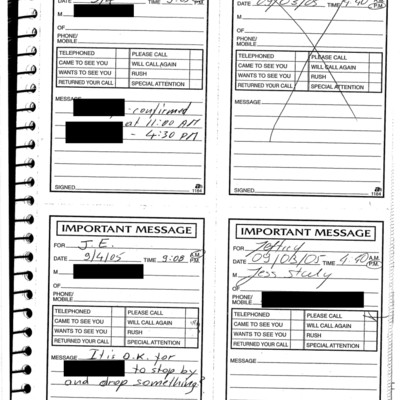 DATE 9/4 TIME
M
OF
PHONE/
MOBILE
TELEPHONED PLEASE CALL
CAME TO SEE YOU WILL CALL AGAIN
WANTS TO SEE YOU RUSH
RETURNED YOUR CALL SPECIAL ATTENTION
MESSAGE
confirmed
at 11:00 AM
- 4:30 PM
SIGNED 1184
DATE 09/03/05 TIME 4:40 A.M. P.M.
M
OF
PHONE/
MOBILE
TELEPHONED PLEASE CALL
CAME TO SEE YOU WILL CALL AGAIN
WANTS TO SEE YOU RUSH
RETURNED YOUR CALL SPECIAL ATTENTION
MESSAGE
SIGNED 1184
IMPORTANT MESSAGE
FOR J.E.
DATE 9/4/05 TIME 9:08 A.M. P.M.
M
OF
PHONE/
MOBILE
TELEPHONED PLEASE CALL
CAME TO SEE YOU WILL CALL AGAIN
WANTS TO SEE YOU RUSH
RETURNED YOUR CALL SPECIAL ATTENTION
MESSAGE It is O.K. for
to stop by
and drop something?
IMPORTANT MESSAGE
FOR Jeffrey
DATE 09/03/05 TIME 4:40 A.M. P.M.
M Jess
OF
PHONE/
MOBILE
TELEPHONED PLEASE CALL
CAME TO SEE YOU WILL CALL AGAIN
WANTS TO SEE YOU RUSH
RETURNED YOUR CALL SPECIAL ATTENTION
MESSAGE